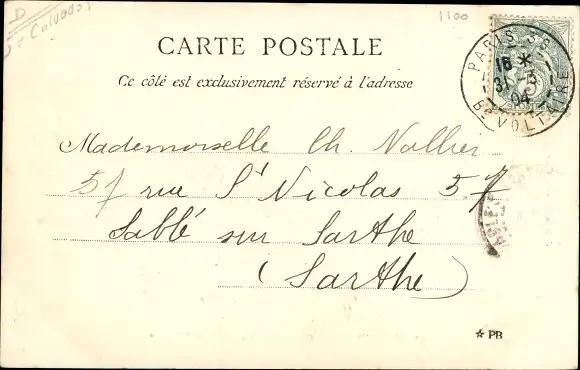 D
Calvados
1100
CARTE POSTALE
Ce côté est exclusivement réservé à l'adresse
PARIS
16 *
31 3
04
Bd VOLTAIRE
5
Mademoiselle Ch. Vallier
57 rue St Nicolas 57
Sablé sur Sarthe
(Sarthe)
* PB